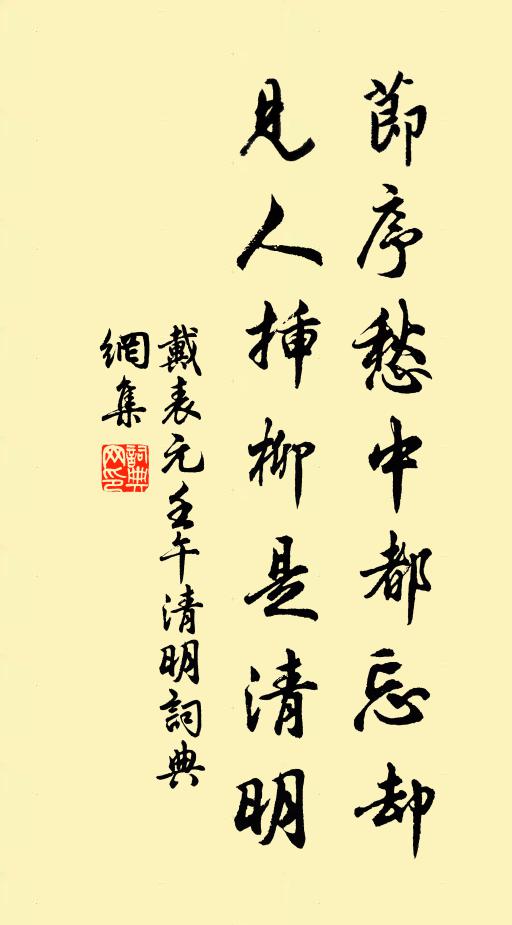 節序愁中都忘却
見人挿柳是清明
戴表元壬午清明詞典
網集
詞典網印